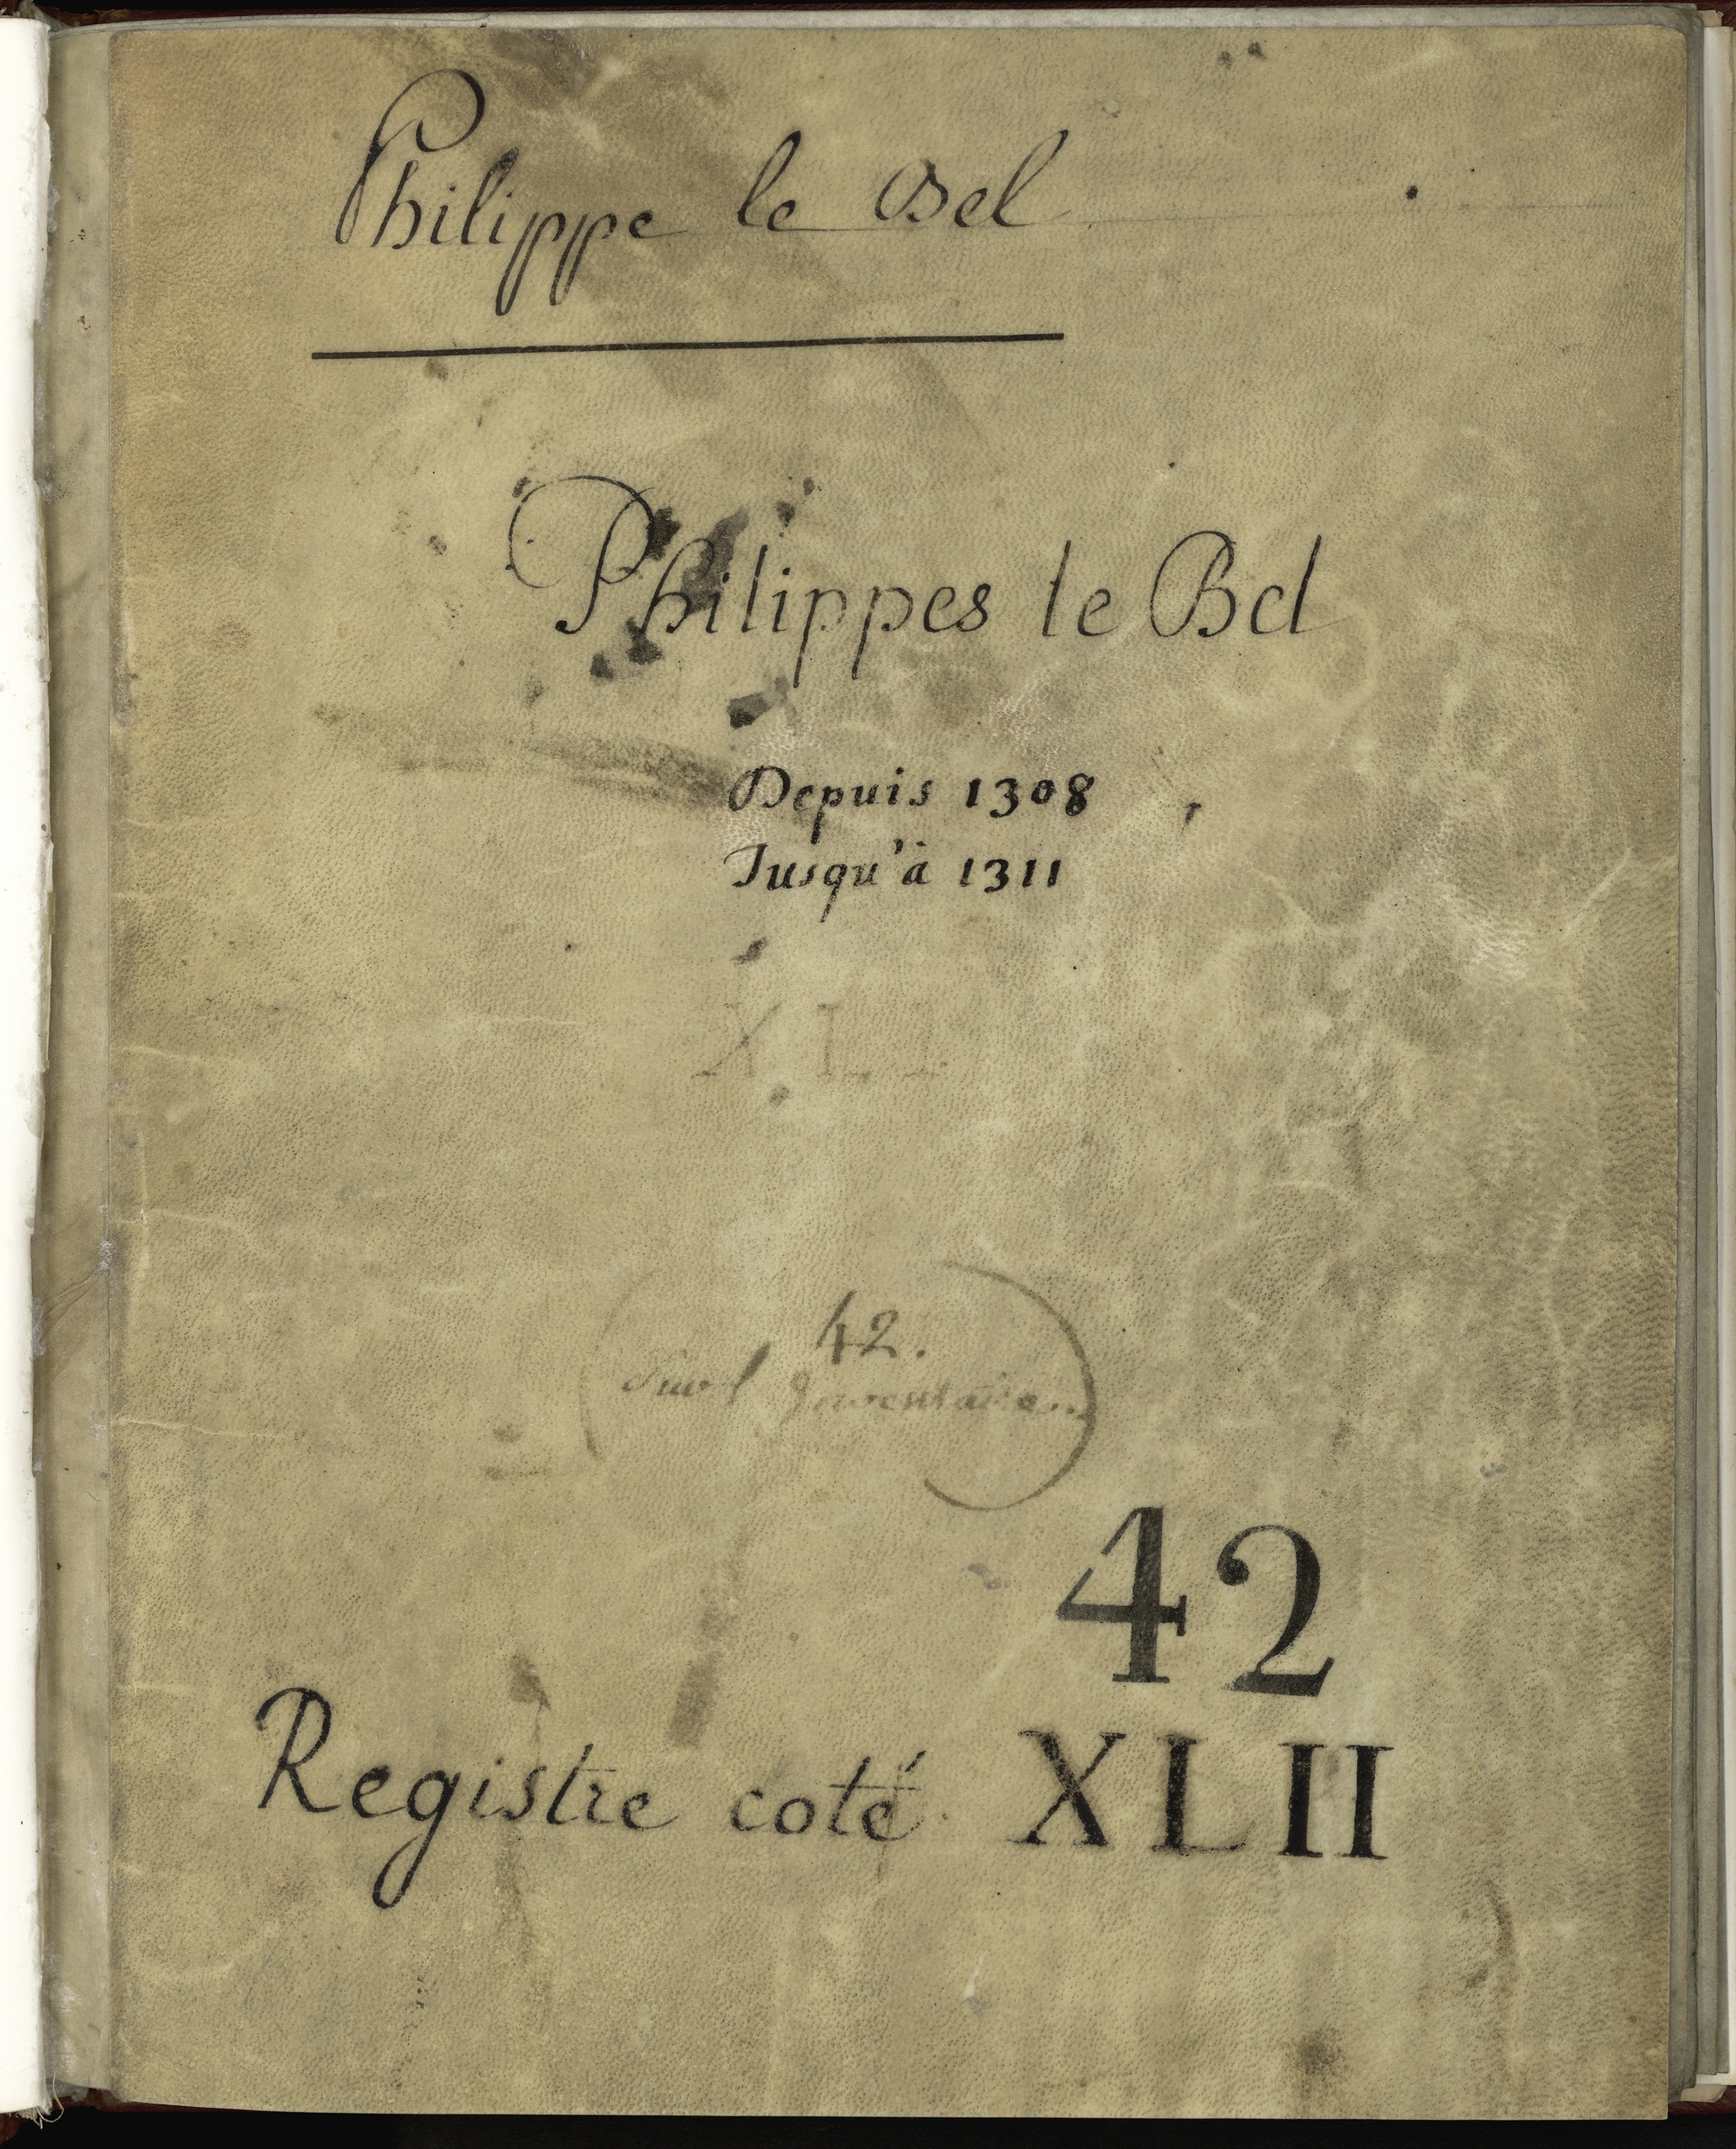 Philippe le Bel
Philippes le Bel
Depuis 1308
Jusqu'à 1311
XLI
42.
Sur l'Inventaire
42
Registre coté XLII